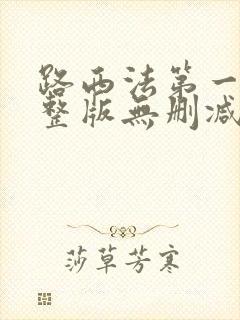 路西法第一
整版無刪减
莎草芳寒